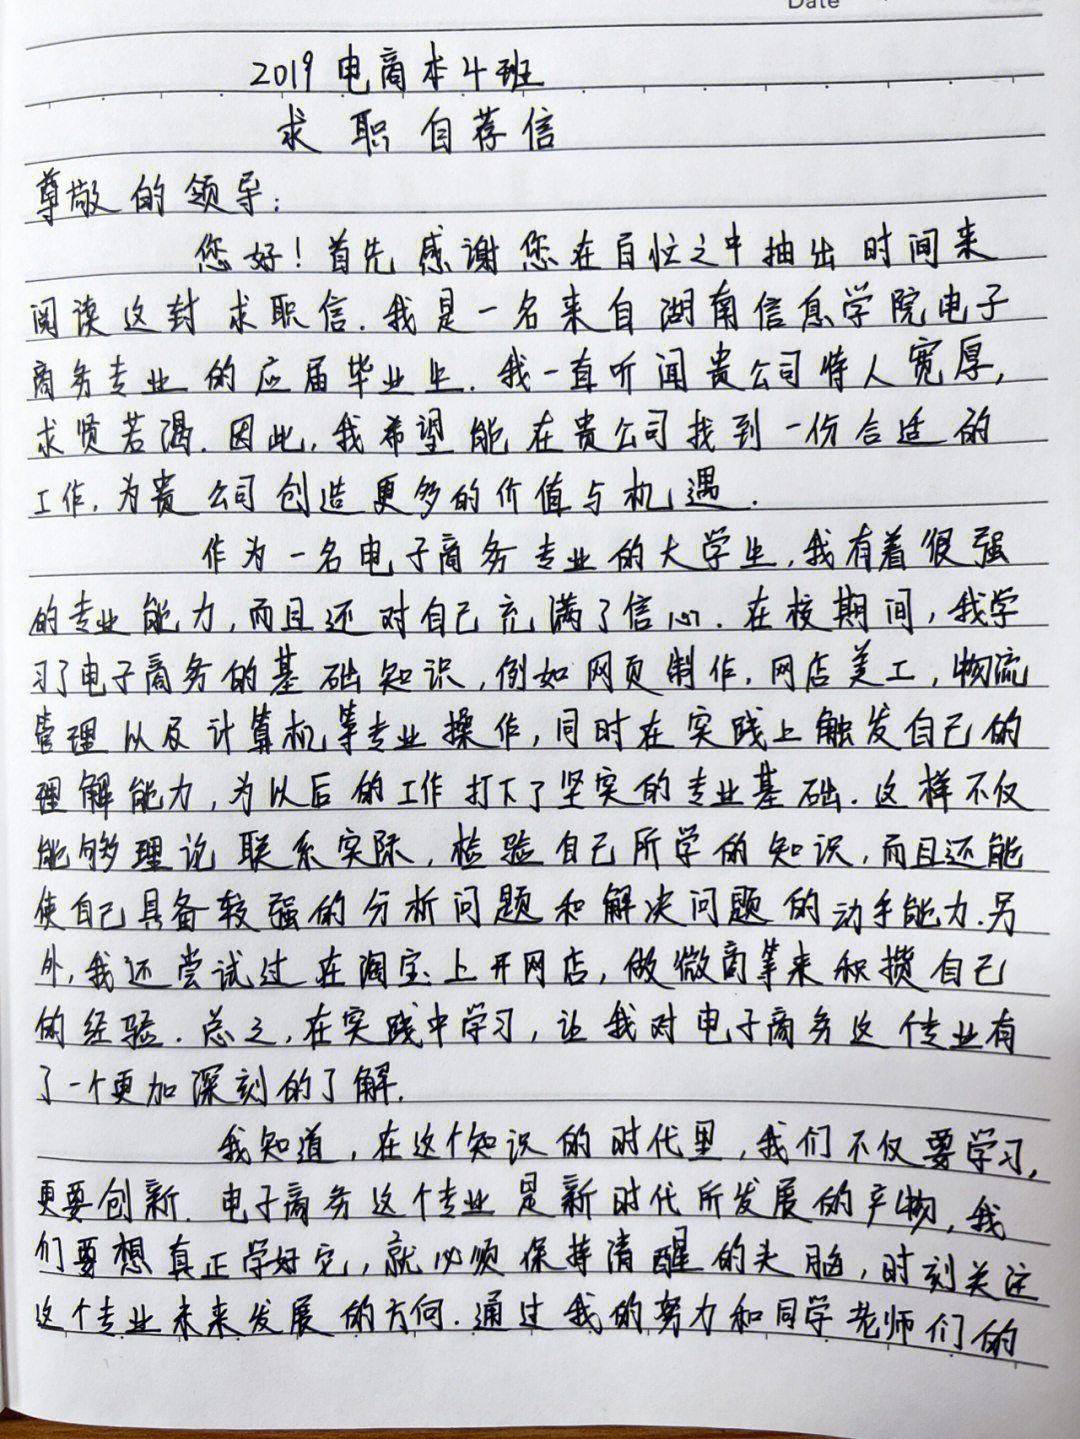 Date
2019电商本4班
求职自荐信
尊敬的领导:
您好!首先感谢您在百忙之中抽出时间来
阅读这封求职信.我是一名来自湖南信息学院电子
商务专业的应届毕业生.我一直听闻贵公司待人宽厚,
求贤若渴.因此,我希望能在贵公司找到一份合适的
工作,为贵公司创造更多的价值与机遇.
作为一名电子商务专业的大学生,我有着很强
的专业能力,而且还对自己充满了信心.在校期间,我学
习了电子商务的基础知识,例如网页制作,网店美工,物流
管理以及计算机等专业操作,同时在实践上触发自己的
理解能力,为以后的工作打下了坚实的专业基础.这样不仅
能够理论联系实际,检验自己所学的知识,而且还能
使自己具备较强的分析问题和解决问题的动手能力.另
外,我还尝试过在淘宝上开网店,做微商等来积攒自己
的经验.总之,在实践中学习,让我对电子商务这个专业有
了一个更加深刻的了解.
我知道,在这个知识的时代里,我们不仅要学习,
更要创新.电子商务这个专业是新时代所发展的产物,我
们要想真正学好它,就必须保持清醒的头脑,时刻关注
这个专业未来发展的方向.通过我的努力和同学老师们的